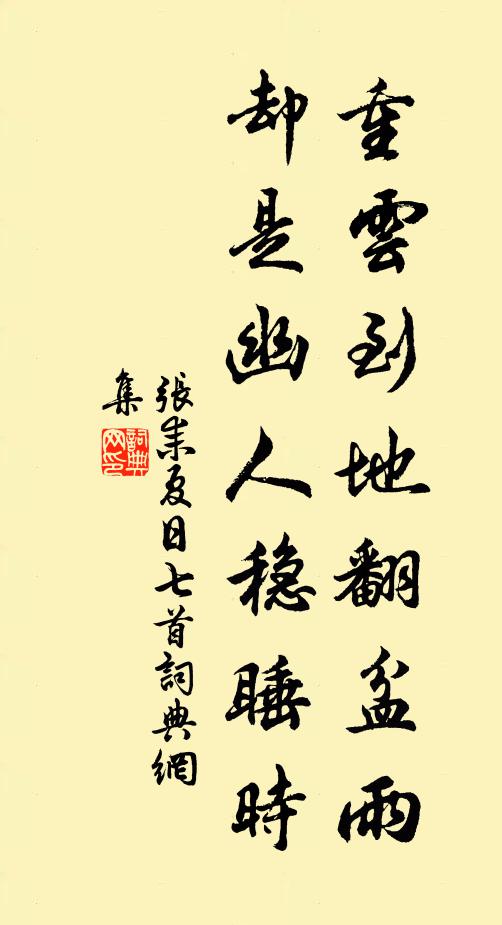 重雲到地翻盆雨
却是幽人稳睡時
張耒夏日七首詞典網
集
詞典
网印